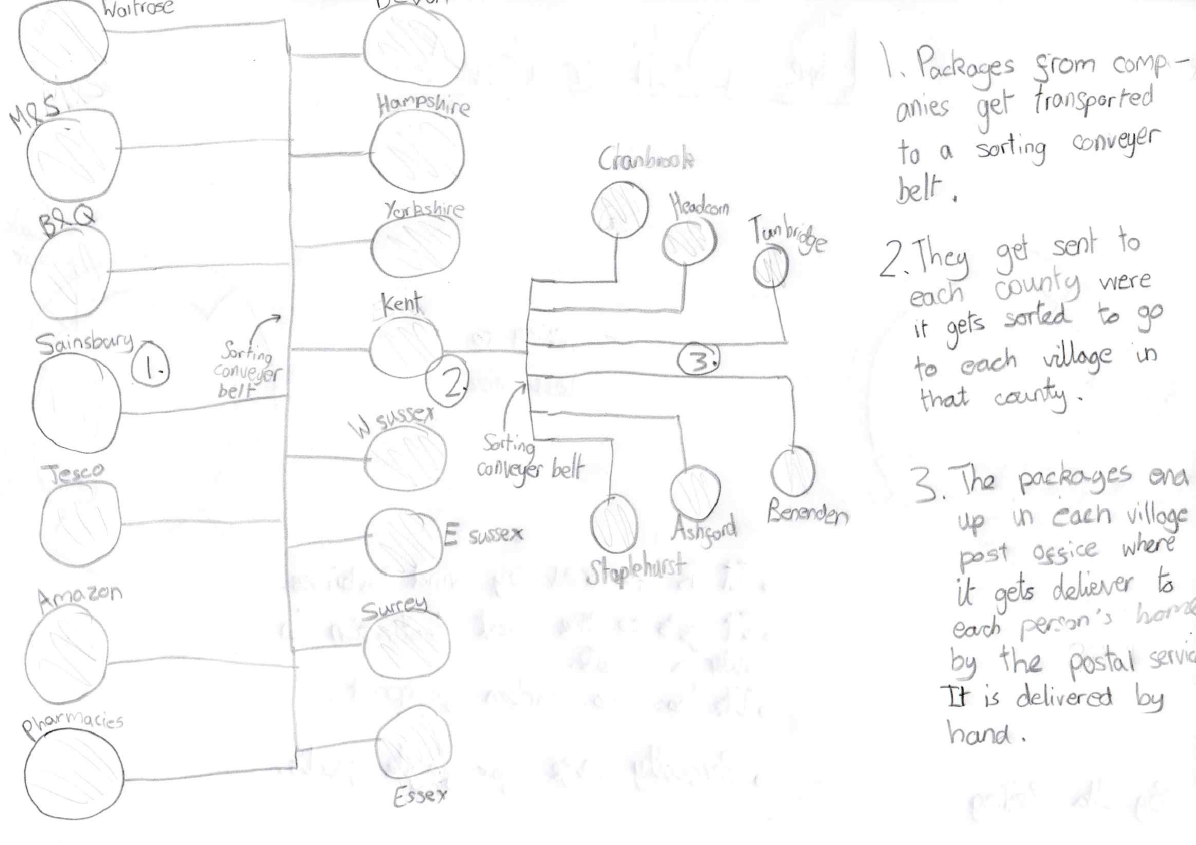 Waitrose
M&S
B&Q
Sainsbury
1.
Tesco
Amazon
Pharmacies
Sorting
conveyer
belt
Devon
Hampshire
Yorkshire
Kent
2.
W sussex
E sussex
Surrey
Essex
Sorting
conveyer belt
Cranbrook
Headcorn
Tunbridge
3.
Staplehurst
Ashford
Benenden
1. Packages from comp-
anies get transported
to a sorting conveyer
belt.
2. They get sent to
each county were
it gets sorted to go
to each village in
that county.
3. The packages end
up in each village
post office where
it gets deliever to
each person's home
by the postal servic
It is delivered by
hand.